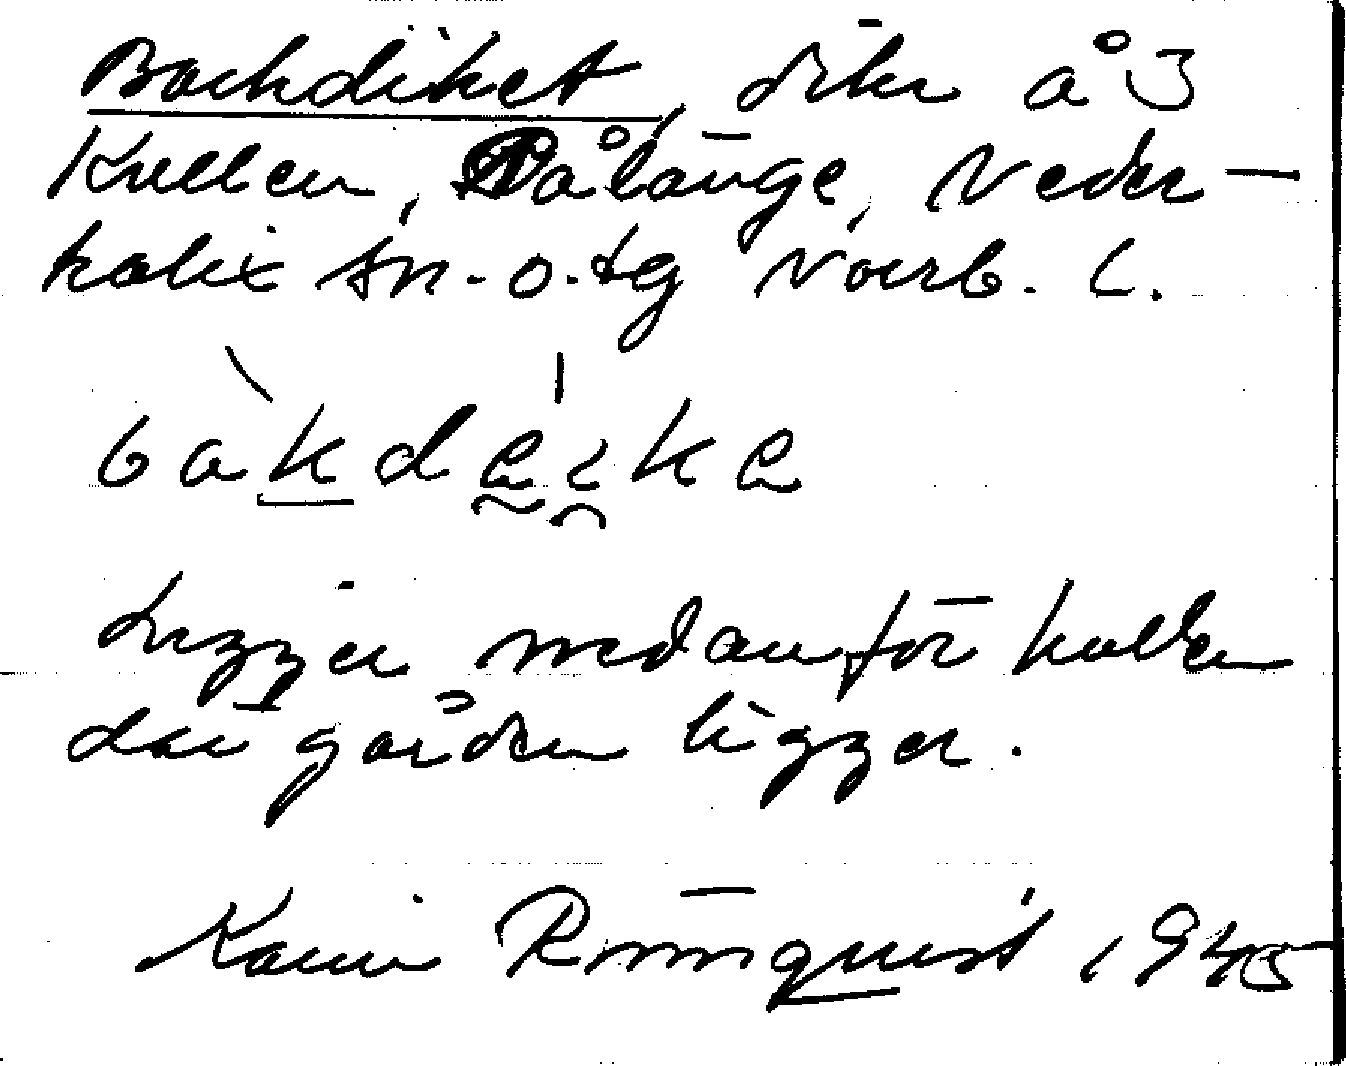 Backdiket, dike å 3
Kullen, Pålänge, Neder-
kalix sn. o. tg Norrb. l.
bakdeike
Ligger nedanför kullen
där gården ligger.
Karin Rönnquist 1945